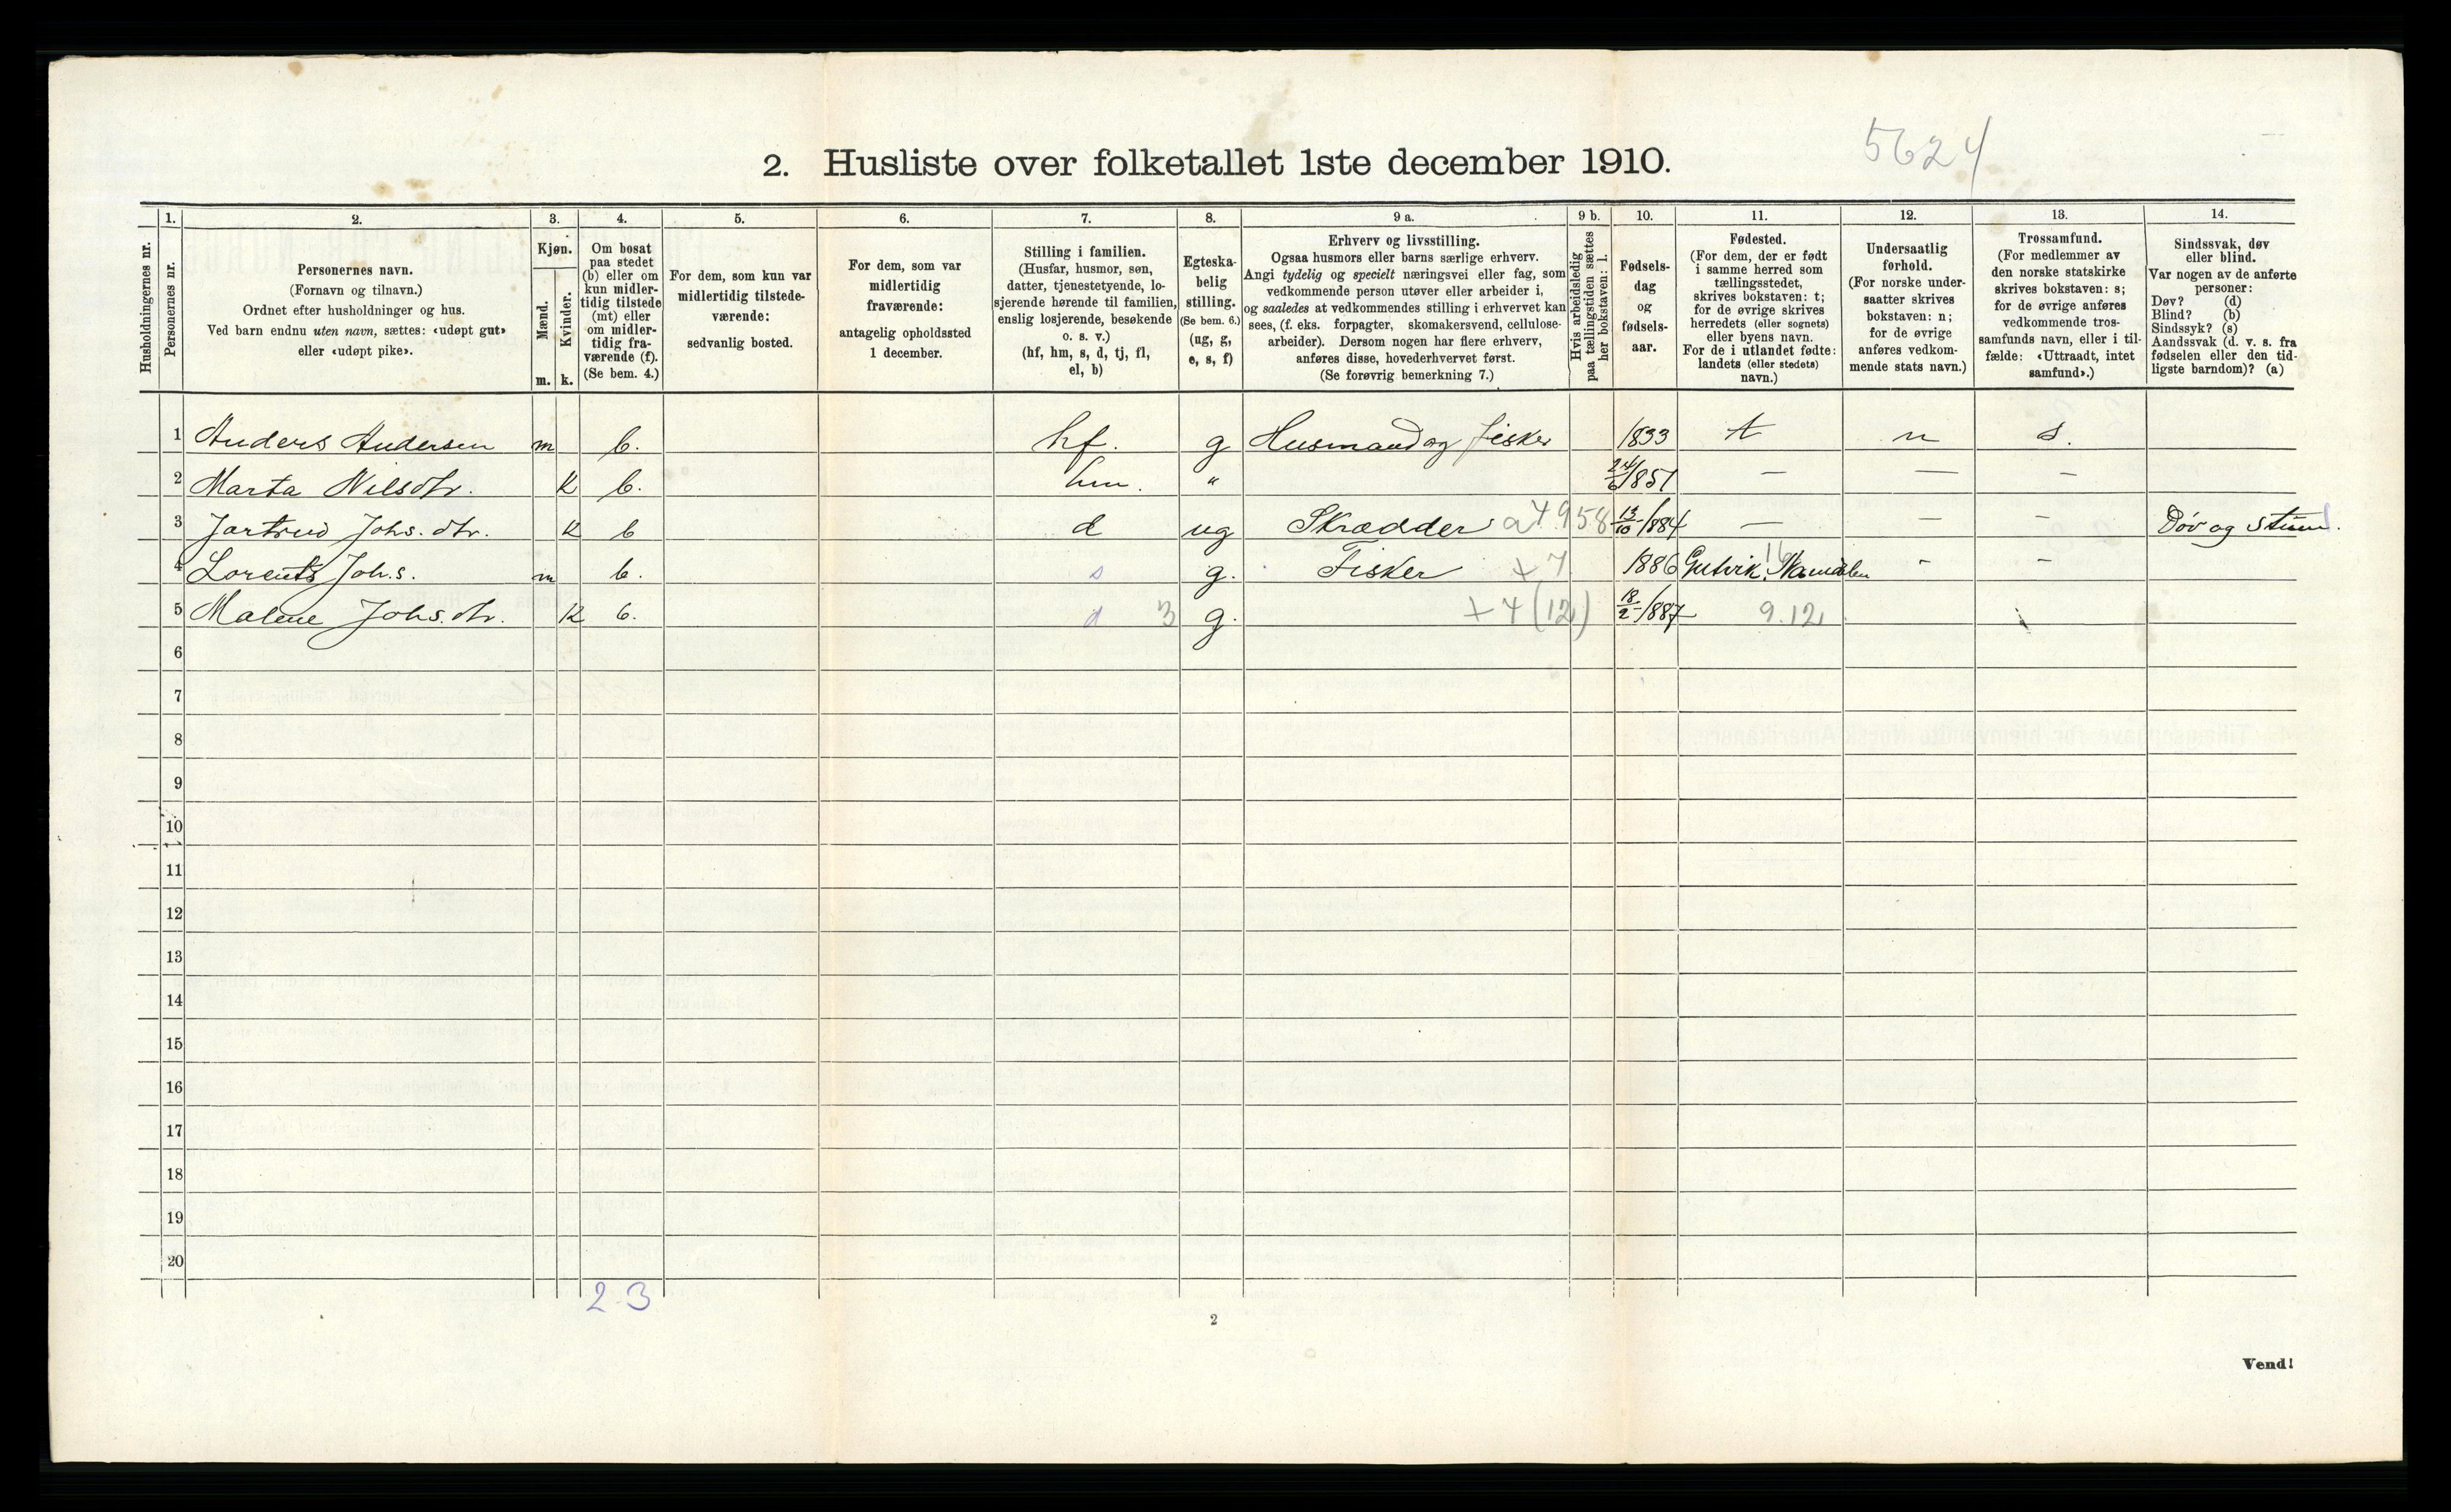 5624
2. Husliste over folketallet 1ste december 1910.
Husholdningernes nr.
1.
Personernes nr.
2.
Personernes navn.
(Fornavn og tilnavn.)
Ordnet efter husholdninger og hus.
Ved barn endnu uten navn, sættes: «udøpt gut»
eller «udøpt pike».
3.
Kjøn.
Mænd.
Kvinder.
m. k.
4.
Om bosat
paa stedet
(b) eller om
kun midler-
tidig tilstede
(mt) eller
om midler-
tidig fra-
værende (f).
(Se bem. 4.)
5.
For dem, som kun var
midlertidig tilstede-
værende:
sedvanlig bosted.
6.
For dem, som var
midlertidig
fraværende:
antagelig opholdssted
1 december.
7.
Stilling i familien.
(Husfar, husmor, søn,
datter, tjenestetyende, lo-
sjerende hørende til familien,
enslig losjerende, besøkende
o. s. v.)
(hf, hm, s, d, tj, fl,
el, b)
8.
Egteska-
belig
stilling.
(Se bem. 6.)
(ug, g,
e, s, f)
9 a.
Erhverv og livsstilling.
Ogsaa husmors eller barns særlige erhverv.
Angi tydelig og specielt næringsvei eller fag, som
vedkommende person utøver eller arbeider i,
og saaledes at vedkommendes stilling i erhvervet kan
sees, (f. eks. forpagter, skomakersvend, cellulose-
arbeider). Dersom nogen har flere erhverv,
anføres disse, hovederhvervet først.
(Se forøvrig bemerkning 7.)
9 b.
Hvis arbeidsledig
paa tællingstiden sættes
her bokstaven: l.
10.
Fødsels-
dag
og
fødsels-
aar.
11.
Fødested.
(For dem, der er født
i samme herred som
tællingsstedet,
skrives bokstaven: t;
for de øvrige skrives
herredets (eller sognets)
eller byens navn.
For de i utlandet fødte:
landets (eller stedets)
navn.)
12.
Undersaatlig
forhold.
(For norske under-
saatter skrives
bokstaven: n;
for de øvrige
anføres vedkom-
mende stats navn.)
13.
Trossamfund.
(For medlemmer av
den norske statskirke
skrives bokstaven: s;
for de øvrige anføres
vedkommende tros-
samfunds navn, eller i til-
fælde: «Uttraadt, intet
samfund».)
14.
Sindssvak, døv
eller blind.
Var nogen av de anførte
personer:
Døv? (d)
Blind? (b)
Sindssyk? (s)
Aandssvak (d. v. s. fra
fødselen eller den tid-
ligste barndom)? (a)
1 Anders Andersen m b. hf. g Husmand og fisker 1833 t n s.
2 Marta Nilsdtr. K b. hm. " 24/6 1851 — — —
3 Jartrud Johs. dtr. K b d ug Skrædder 958 13/10 1884 — — — Døv og stum.
4 Lorents Joh.s. m b. s g. Fisker + 7 1886 Gutvik, Namdalen - -
5 Malene Johs. dtr. K b. d 3 g. + 7 (12) 18/2 1887 9.12
6
7
8
9
10
11
12
13
14
15
16
17
18
19
20
2-3
2
Vend!